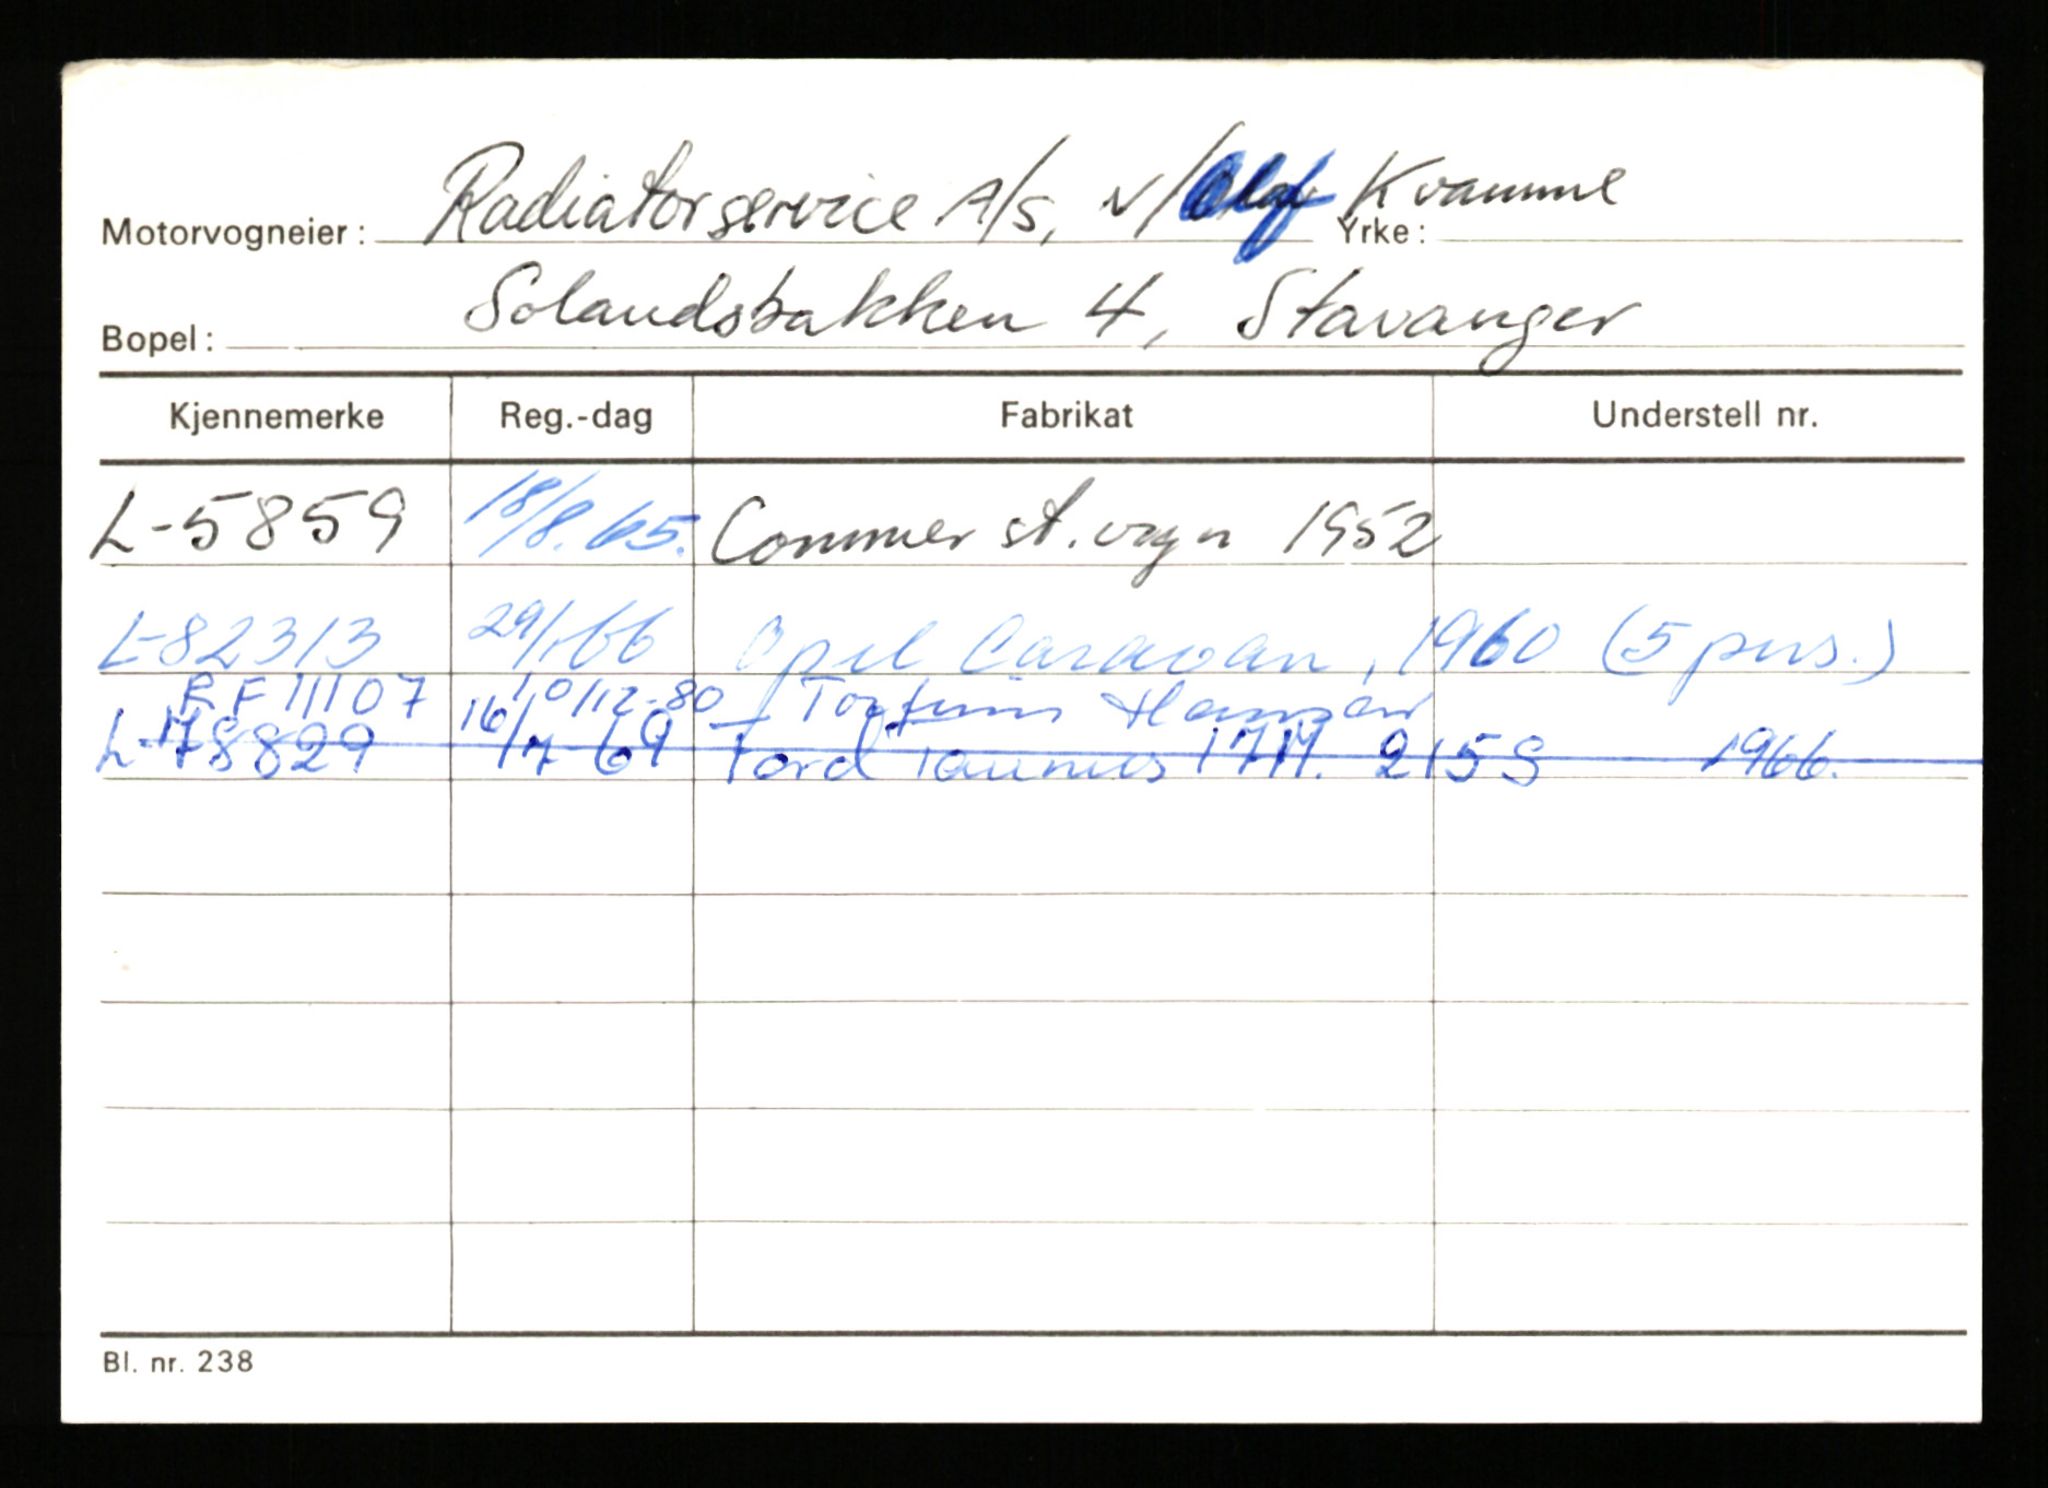 Motorvogneier: Radiatorservice A/S, v/ Olaf Kvamme Yrke:
Bopel: Solandsbakken 4, Stavanger
Kjennemerke Reg.-dag Fabrikat Understell nr.
L-5859 18/8.65. Commer st.vogn 1952
L-82313 29/1.66 Opel Caravan, 1960 (5 pers.)
RF 11107 10/12-80
L-78829 16/7 69 Ford Taunus 17M. 215S 1966.
Bl. nr. 238